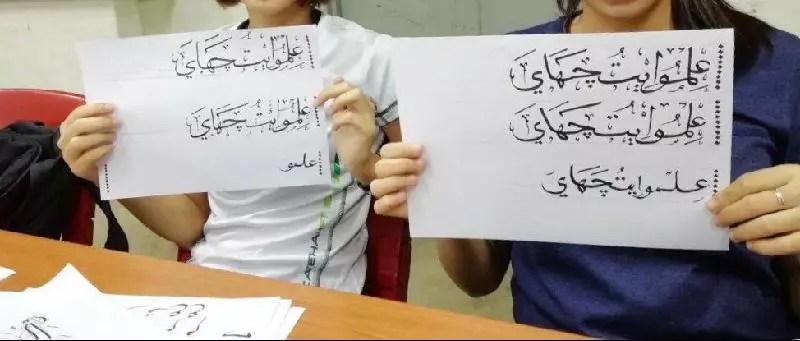 علمو ايت چهاي
علمو ايت چهاي
علمو
علمو ايت چهاي
علمو ايت چهاي
علمو ايت چهاي